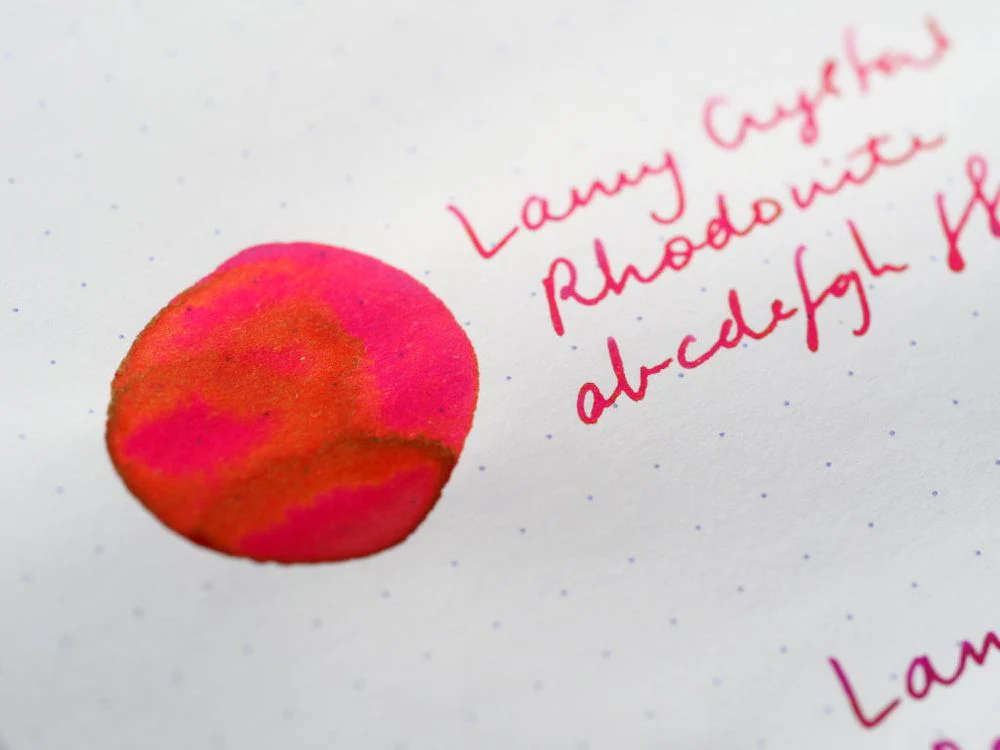 Lamy Crystal
Rhodonite
abcdefgh
Lam